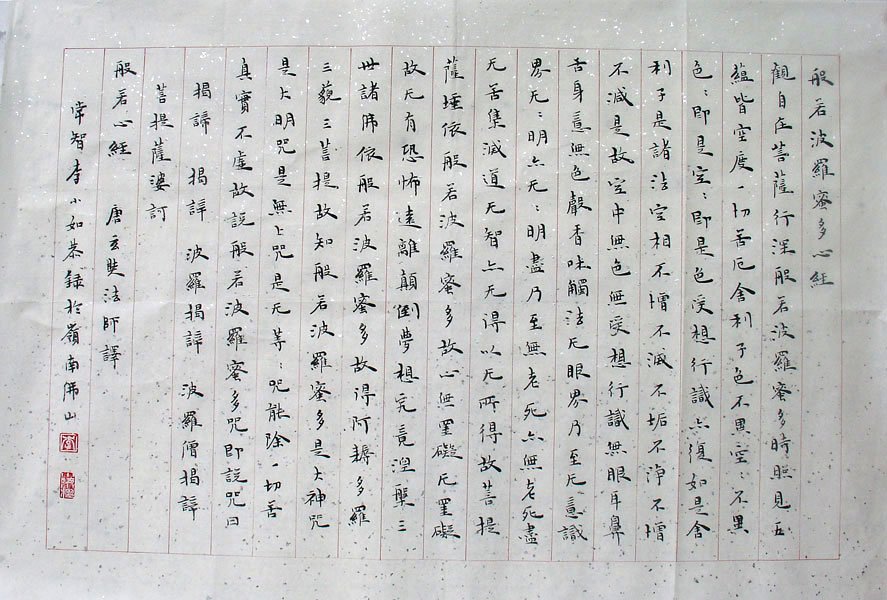 般若波羅蜜多心經
觀自在菩薩行深般若波羅蜜多時照見五
蘊皆空度一切苦厄舍利子色不異空:不異
色:即是空:即是色受想行識亦復如是舍
利子是諸法空相不憎不滅不垢不淨不憎
不減是故空中無色無受想行識無眼耳鼻
舌身意無色聲香味觸法无眼界乃至无意識
界无:明亦无:明盡乃至無老死亦無老死盡
无苦集滅道无智亦无得以无所得故菩提
薩埵依般若波羅蜜多故心無罣礙无罣礙
故无有恐怖遠離顛倒夢想究竟涅槃三
世諸佛依般若波羅蜜多故得阿耨多羅
三藐三菩提故知般若波羅蜜多是大神咒
是大明咒是無上咒是无等:咒能除一切苦
真實不虛故說般若波羅蜜多咒即說咒曰
揭諦 揭諦 波羅揭諦 波羅僧揭諦
菩提薩婆訶
般若心經 唐玄奘法師譯
常智李小如恭錄於嶺南佛山